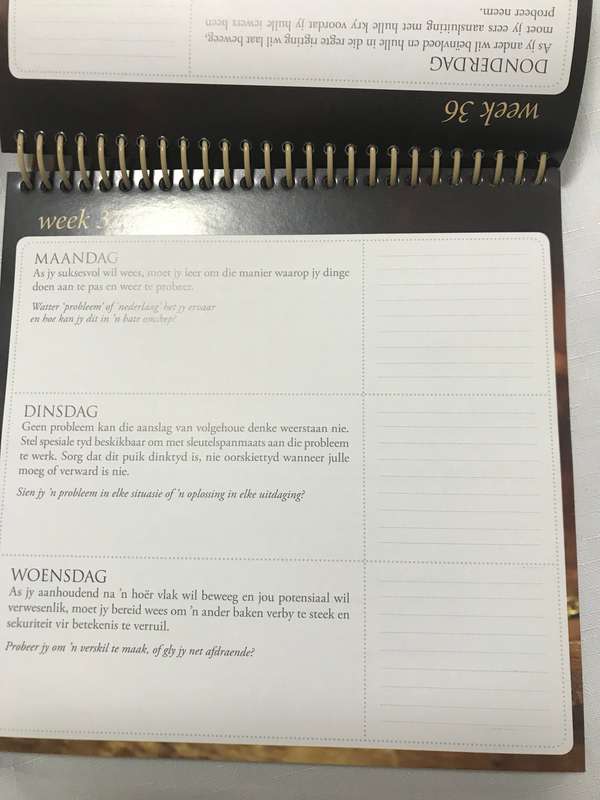 DONDERDAG
As jy ander wil beïnvloed en hulle in die regte rigting wil laat beweeg,
moet jy eers aansluiting met hulle kry voordat jy hulle iewers heen
probeer neem.
week 36
week 37
MAANDAG
As jy suksesvol wil wees, moet jy leer om die manier waarop jy dinge
doen aan te pas en weer te probeer.
Watter 'probleem' of 'nederlaag' het jy ervaar
en hoe kan jy dit in 'n bate omskep?
DINSDAG
Geen probleem kan die aanslag van volgehoue denke weerstaan nie.
Stel spesiale tyd beskikbaar om met sleutelspanmaats aan die probleem
te werk. Sorg dat dit puik dinktyd is, nie oorskiettyd wanneer julle
moeg of verward is nie.
Sien jy 'n probleem in elke situasie of 'n oplossing in elke uitdaging?
WOENSDAG
As jy aanhoudend na 'n hoër vlak wil beweeg en jou potensiaal wil
verwesenlik, moet jy bereid wees om 'n ander baken verby te steek en
sekuriteit vir betekenis te verruil.
Probeer jy om 'n verskil te maak, of gly jy net afdraende?